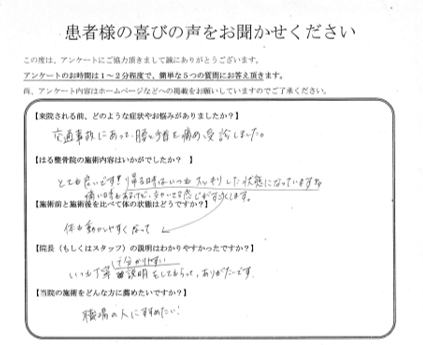 患者様の喜びの声をお聞かせください
この度は、アンケートにご協力頂きまして誠にありがとうございます。
アンケートのお時間は1～2分程度で、簡単な5つの質問にお答え頂きます。
尚、アンケート内容はホームページなどへの掲載をお願いしていますのでご了承ください。
【来院される前、どのような症状やお悩みがありましたか？】
交通事故にあって、腰と首を痛め受診しました。
【はる整骨院の施術内容はいかがでしたか？ 】
とても良いです!! 帰る時はいつもスッキリした状態になっています
痛い時もあるけど、
【施術前と施術後を比べて体の状態はどうですか？】
体も動かしやすくなって
【院長（もしくはスタッフ）の説明はわかりやすかったですか？】
分かりやすい
いつも丁寧 説明をしてもらって、ありがたいです。
【当院の施術をどんな方に薦めたいですか？】
職場の人にすすめたい!